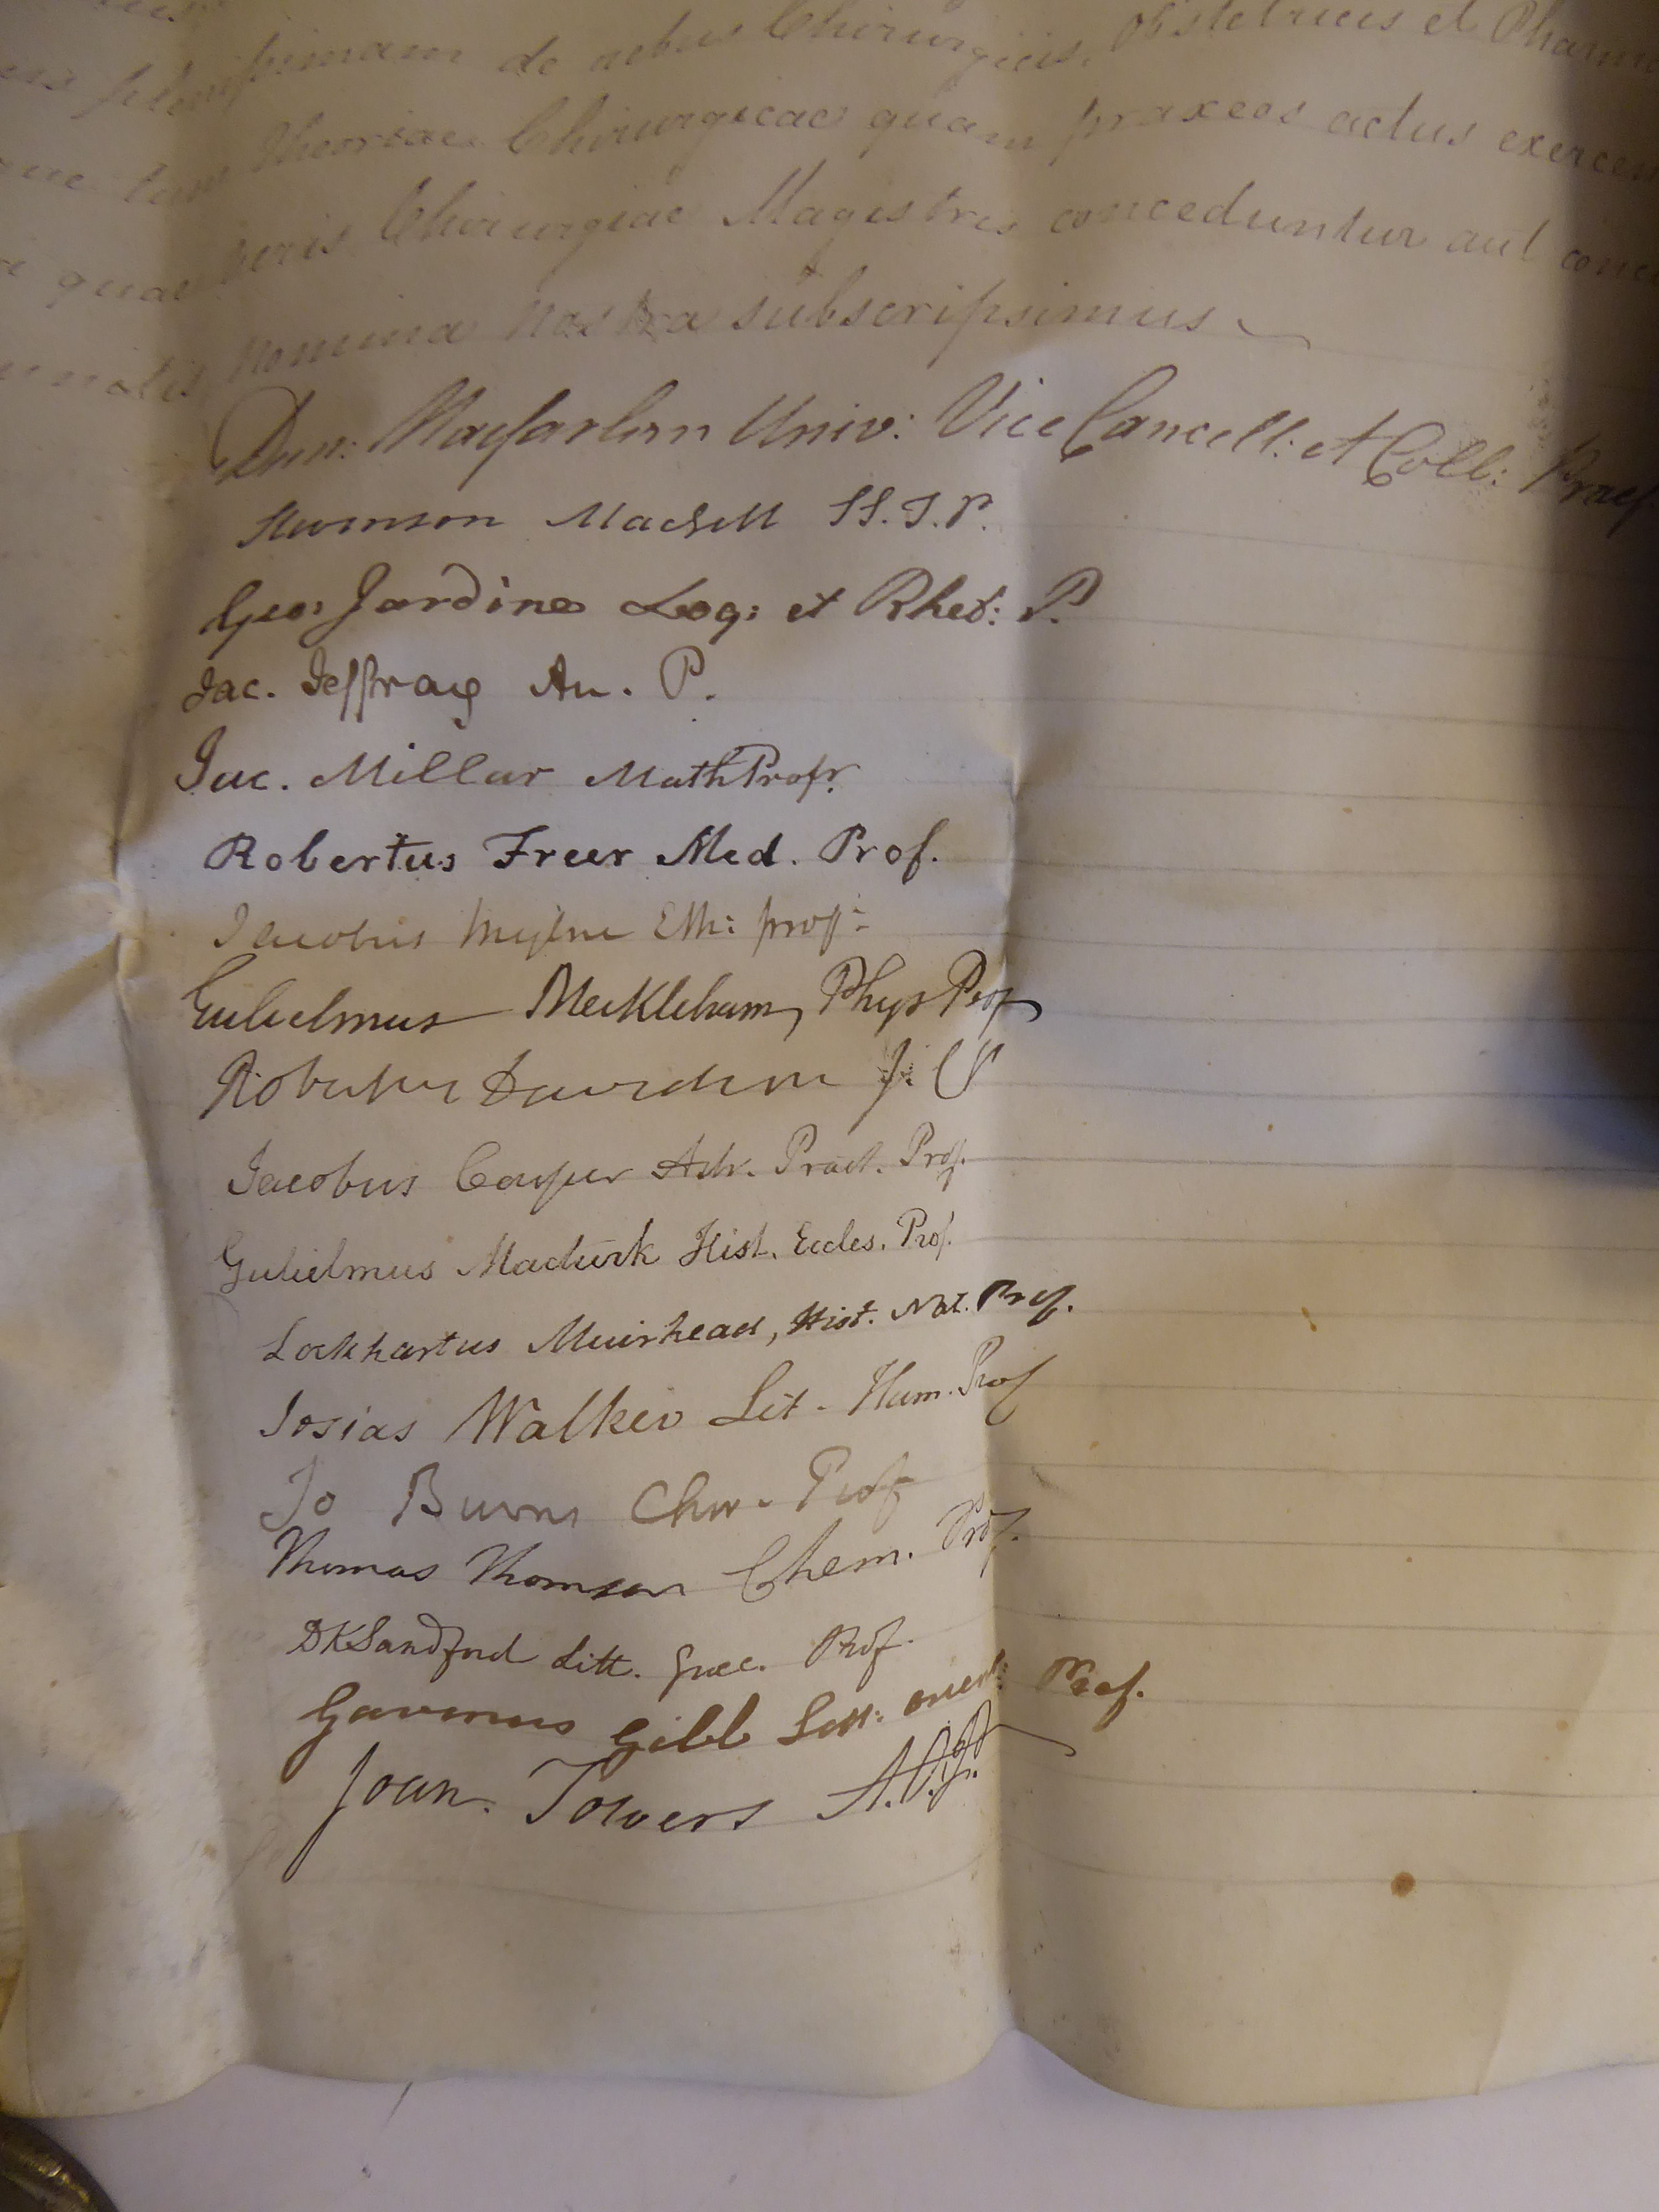 plenissimam de rebus Chirurgicis, Obstetricis et Pharm
tum theoriae Chirurgicae quam praxeos actus exercen
quae veris Chirurgiae Magistris conceduntur aut conce
nomina nostra subscripsimus
Dun: Macfarlan Univ: Vice Cancell: et Coll: Praef.
Stevenson Macgill SS.T.P.
Geo: Jardine Log: et Rhet: P.
Jac. Jeffray An. P.
Jac. Millar Math Profr.
Robertus Freer Med. Prof.
Jacobus Mylne Eth: prof:
Gulielmus Meikleham, Phys Prof
Robertus Davidson J. C P
Jacobus Couper Astr. Pract. Prof.
Gulielmus Macturk Hist. Eccles. Prof.
Lockhartus Muirhead, Hist. Nat. Prof.
Josias Walker Lit. Hum. Prof
Jo Burns Chir. Prof
Thomas Thomson Chem. Prof.
DKSandford Litt. Graec. Prof.
Gavinus Gibb Litt: orient: Prof.
Joan. Towers A. O. P.